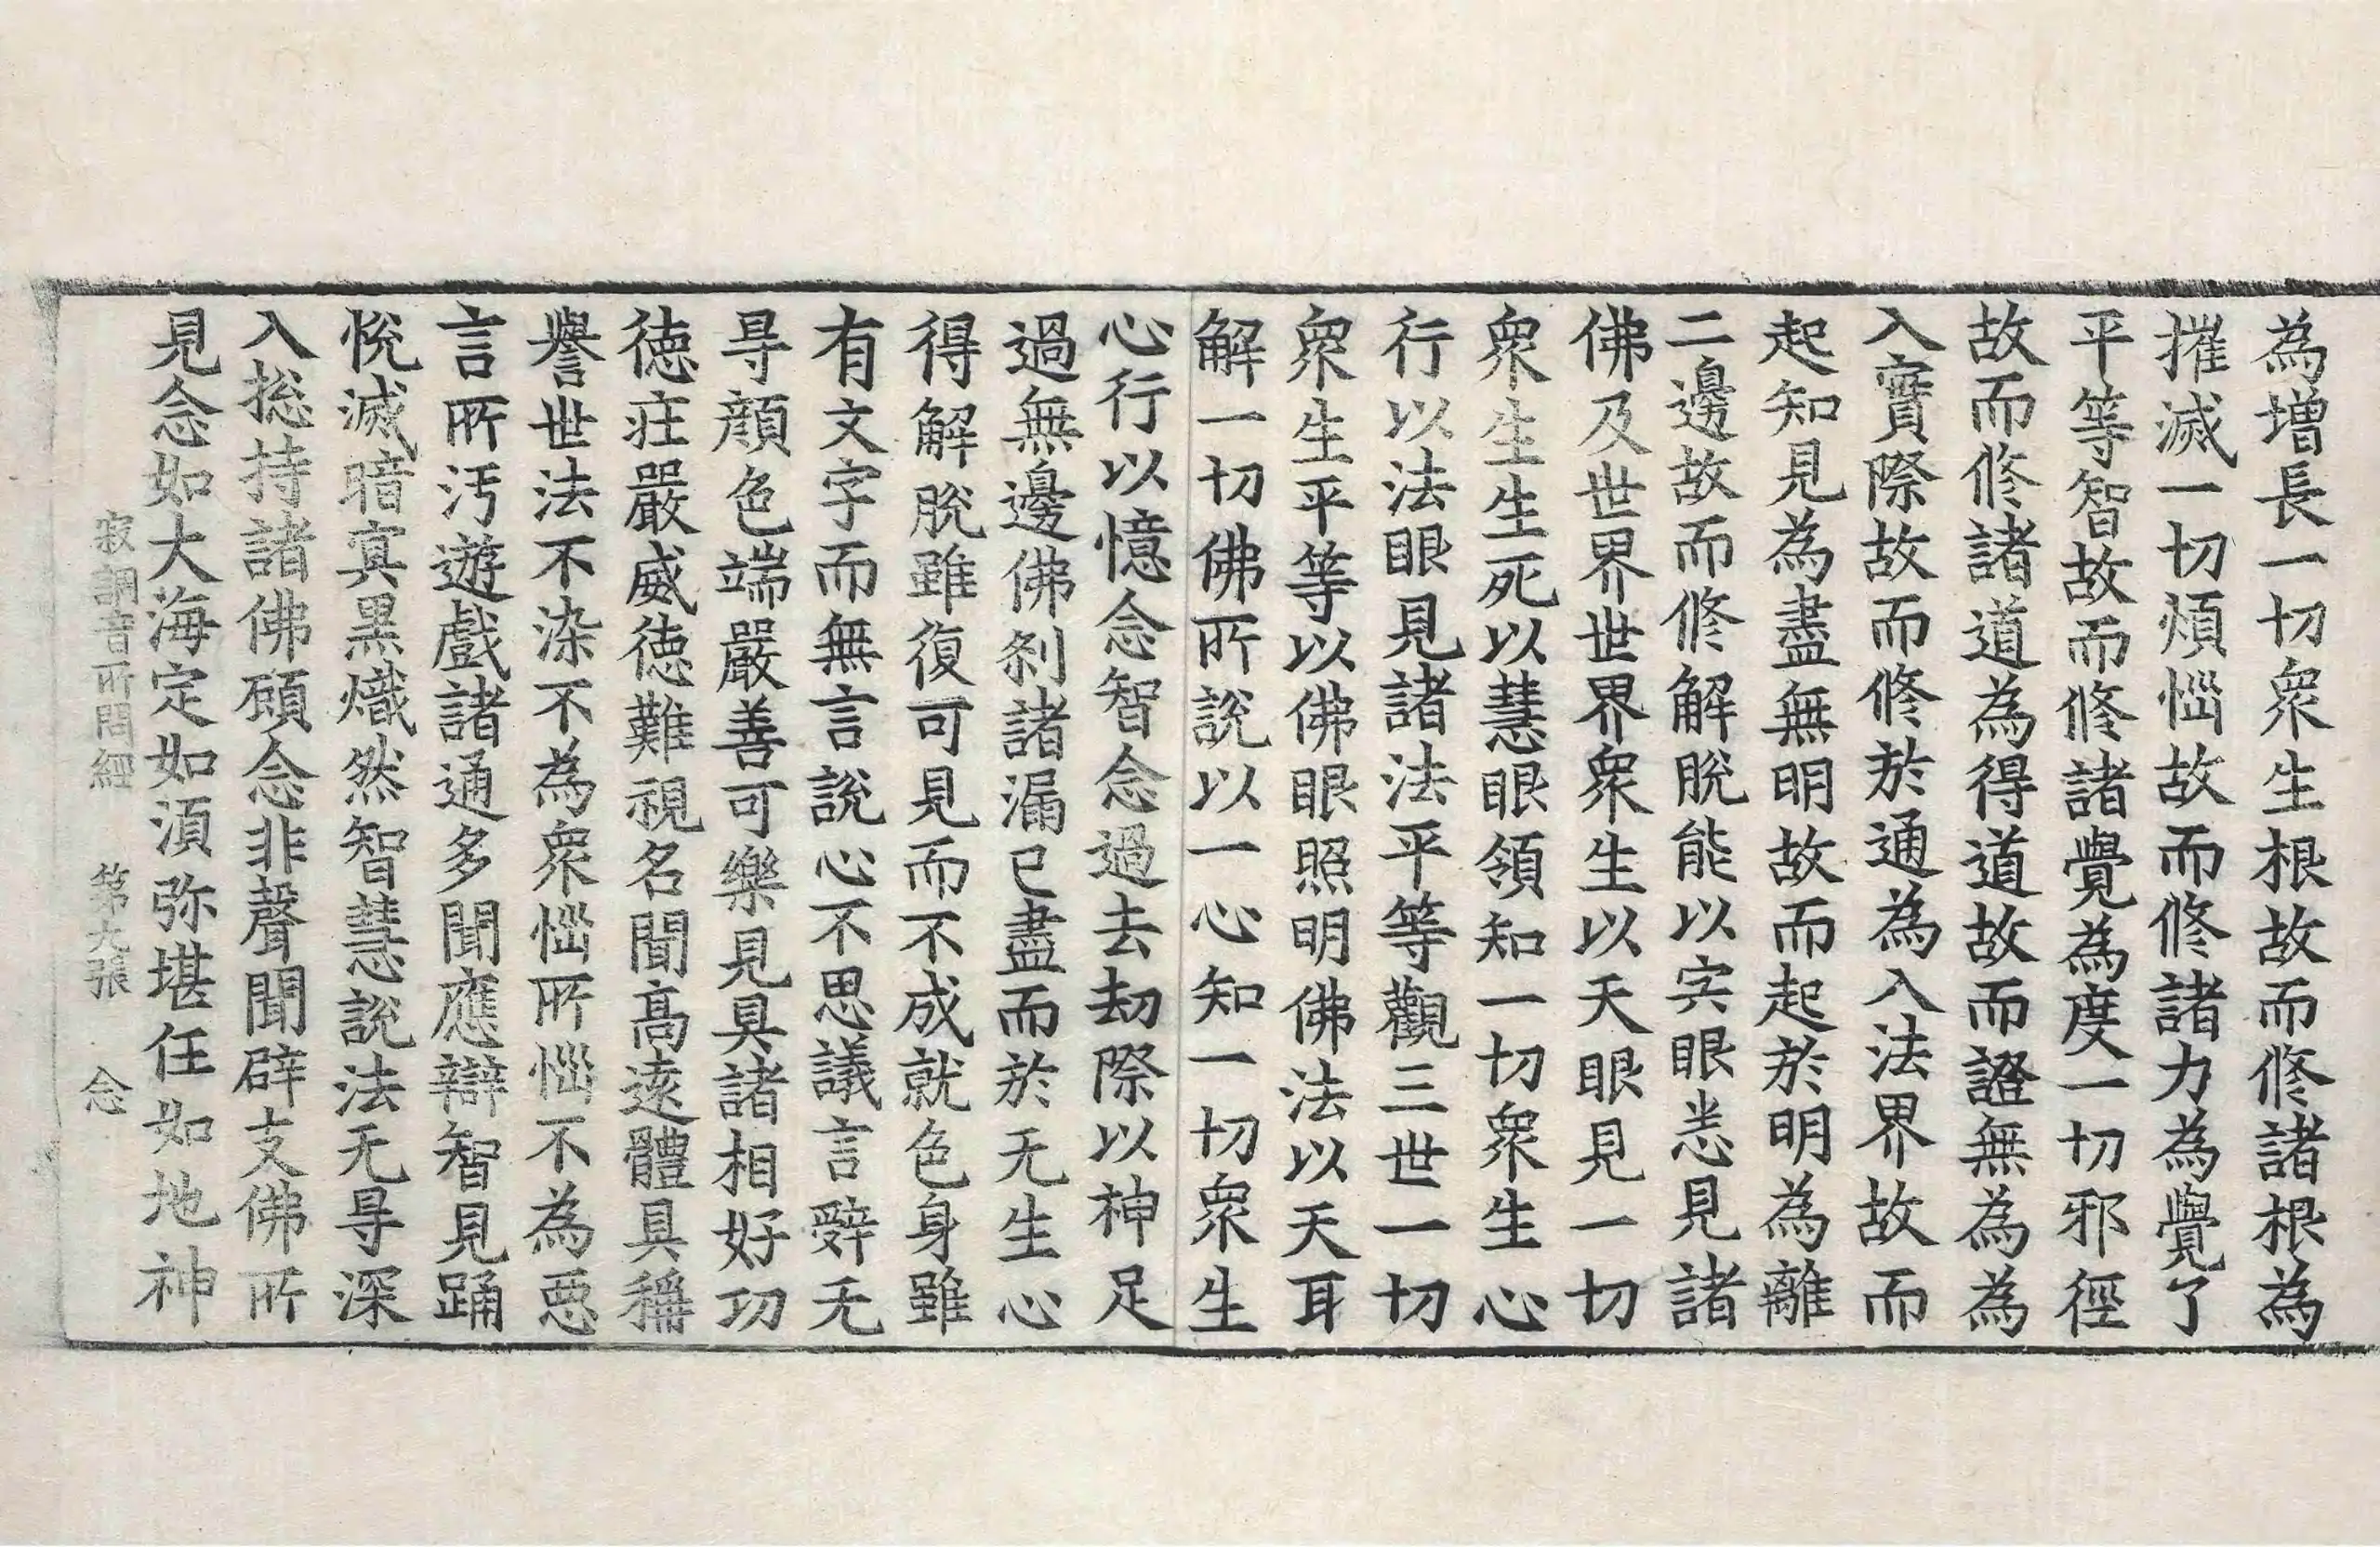 為增長一切衆生根故而修諸根為
摧滅一切煩惱故而修諸力為覺了
平等智故而修諸覺為度一切邪徑
故而修諸道為得道故而證無為為
入實際故而修於通為入法界故而
起知見為盡無明故而起於明為離
二邊故而修解脫能以宍眼悉見諸
佛及世界世界衆生以天眼見一切
衆生生死以慧眼領知一切衆生心
行以法眼見諸法平等觀三世一切
衆生平等以佛眼照明佛法以天耳
解一切佛所說以一心知一切衆生
心行以憶念智念過去劫際以神足
過無邊佛刹諸漏已盡而於无生心
得解脫雖復可見而不成就色身雖
有文字而無言說心不思議言辭无
㝵顏色端嚴善可樂見具諸相好功
徳莊嚴威徳難視名聞高遠體具稱
譽世法不染不為衆惱所惱不為惡
言所汚遊戲諸通多聞應辯智見踊
悅滅暗㝠黑熾然智慧說法无㝵深
入捴持諸佛願念非聲聞辟支佛所
見念如大海定如湏弥堪任如地神
寂調音所問經　第九張　念